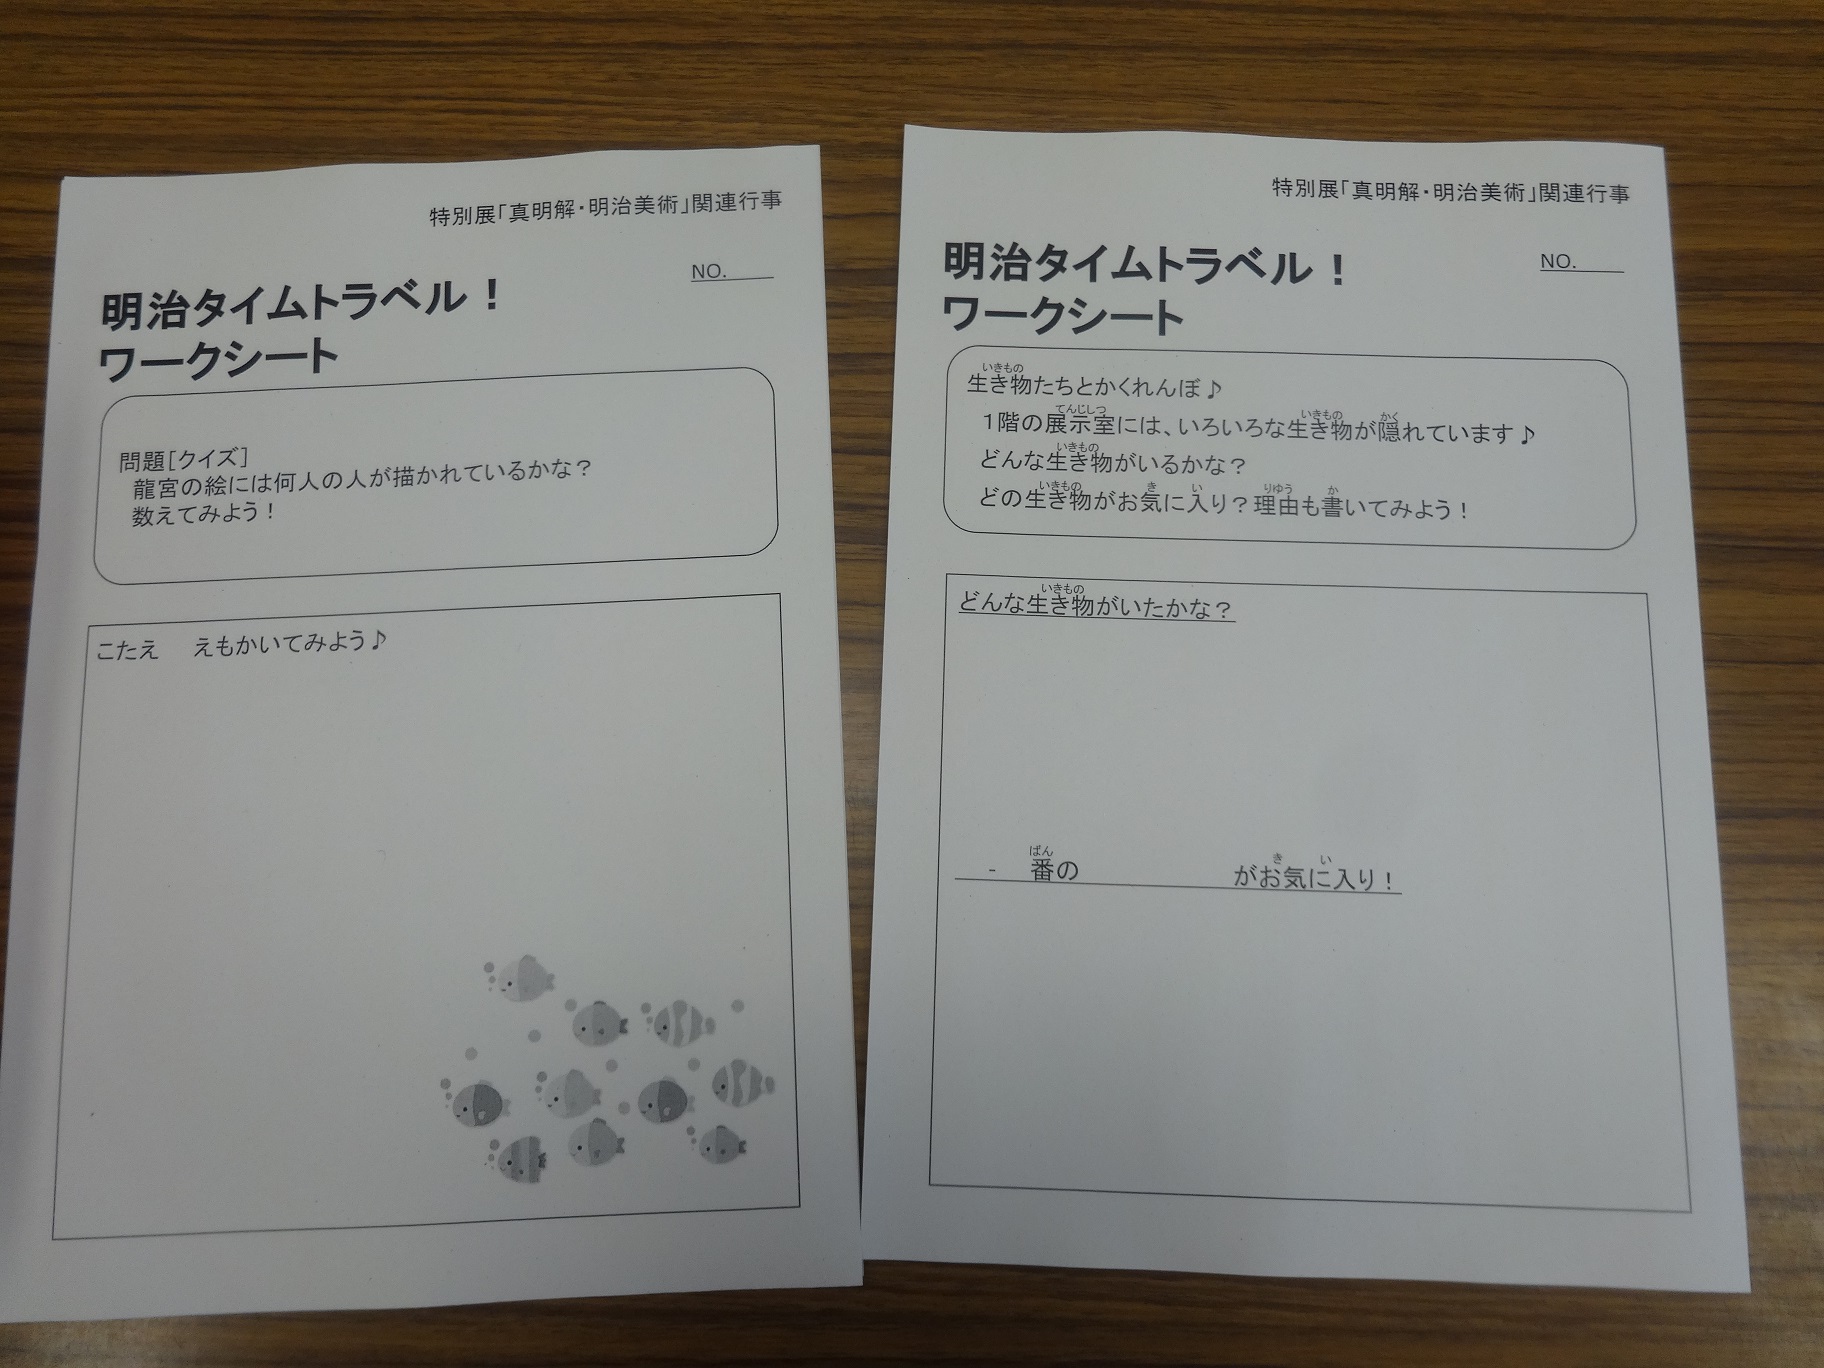 特別展「真明解・明治美術」関連行事
NO.
明治タイムトラベル！
ワークシート
問題[クイズ]
龍宮の絵には何人の人が描かれているかな？
数えてみよう！
こたえ　えもかいてみよう♪
特別展「真明解・明治美術」関連行事
NO.
明治タイムトラベル！
ワークシート
いきもの
生き物たちとかくれんぼ♪
てんじしつ　いきもの　かく
1階の展示室には、いろいろな生き物が隠れています♪
いきもの
どんな生き物がいるかな？
いきもの　き　い　りゆう　か
どの生き物がお気に入り？理由も書いてみよう！
いきもの
どんな生き物がいたかな？
ばん　き　い
-　番の　がお気に入り！